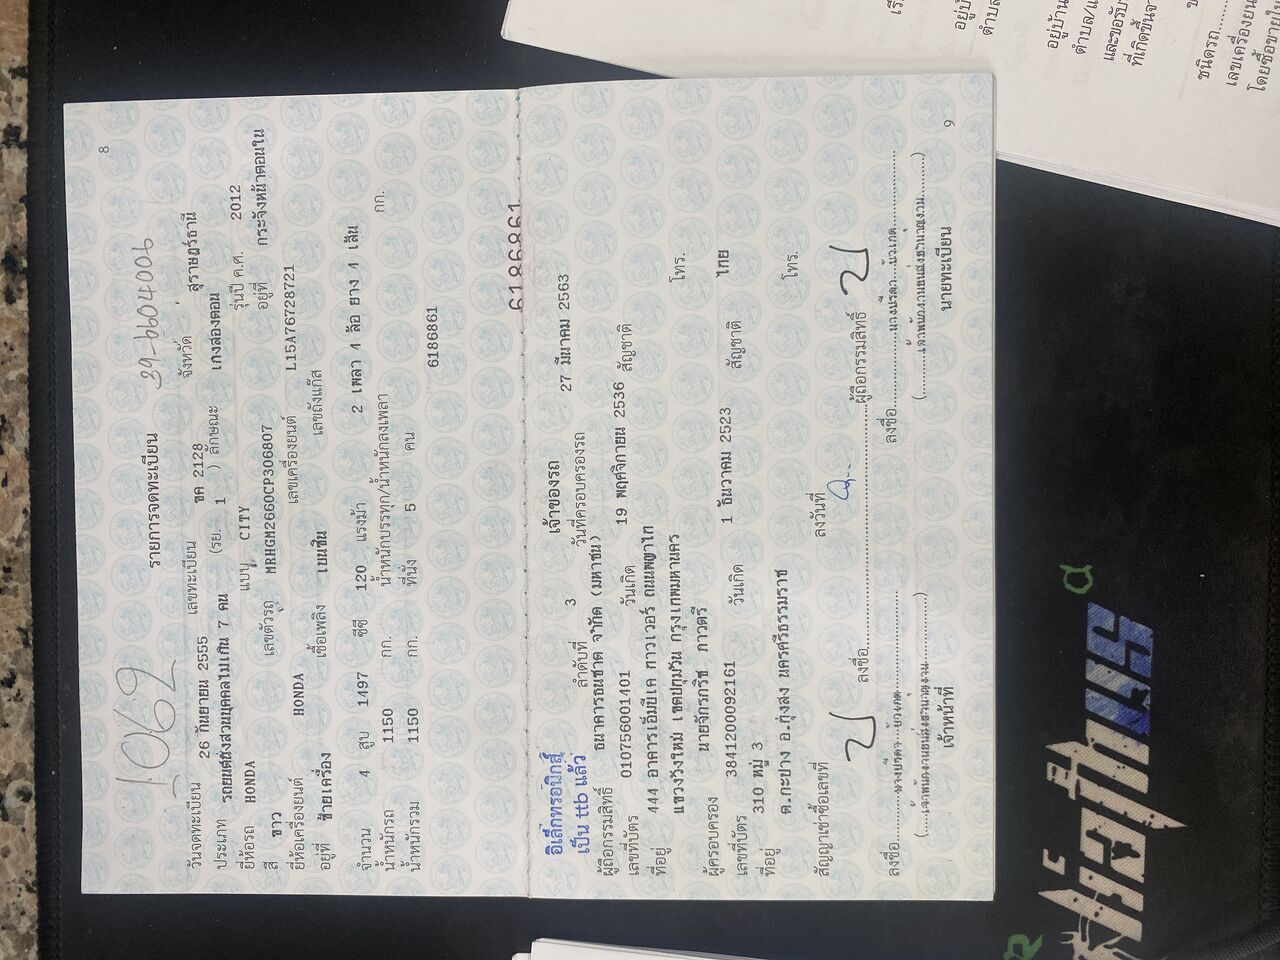 8
1069
39-6604006
รายการจดทะเบียน
วันจดทะเบียน 26 กันยายน 2555 เลขทะเบียน ขค 2128 จังหวัด สุราษฎร์ธานี
ประเภท รถยนต์นั่งส่วนบุคคลไม่เกิน 7 คน (รย. 1 ) ลักษณะ เก๋งสองตอน
ยี่ห้อรถ HONDA แบบ CITY รุ่นปี ค.ศ. 2012
สี ขาว เลขตัวรถ MRHGM2660CP306807 อยู่ที่ กระจังหน้าตอนใน
ยี่ห้อเครื่องยนต์ HONDA เลขเครื่องยนต์ L15A76728721
อยู่ที่ ซ้ายเครื่อง เชื้อเพลิง เบนซิน เลขถังแก๊ส
จำนวน 4 สูบ 1497 ซีซี 120 แรงม้า 2 เพลา 4 ล้อ ยาง 4 เส้น
น้ำหนักรถ 1150 กก. น้ำหนักบรรทุก/น้ำหนักลงเพลา กก.
น้ำหนักรวม 1150 กก. ที่นั่ง 5 คน
6186861
6186861
อิเล็กทรอนิกส์
เป็น ttb แล้ว
เจ้าของรถ
ลำดับที่ 3 วันที่ครอบครองรถ 27 มีนาคม 2563
ผู้ถือกรรมสิทธิ์ ธนาคารธนชาต จำกัด (มหาชน)
เลขที่บัตร 010756001401 วันเกิด 19 พฤศจิกายน 2536 สัญชาติ
ที่อยู่ 444 อาคารเอ็มบีเค ทาวเวอร์ ถนนพญาไท
แขวงวังใหม่ เขตปทุมวัน กรุงเทพมหานคร โทร.
ผู้ครอบครอง นายจักรกริช ภาวตรี
เลขที่บัตร 3841200092161 วันเกิด 1 ธันวาคม 2523 สัญชาติ ไทย
ที่อยู่ 310 หมู่ 3
ต.กะปาง อ.ทุ่งสง นครศรีธรรมราช โทร.
สัญญาเช่าซื้อเลขที่ ลงวันที่
ลงชื่อ ผู้ถือกรรมสิทธิ์
ลงชื่อ ลงชื่อ
เจ้าหน้าที่ นายทะเบียน
9
ก๊อปปี้
อยู่บ้าน
ตำบล/แ
และขอรับ
ที่เกิดขึ้นจา
ชนิดรถ
เลขเครื่องยน
โดยซื้อขายใน